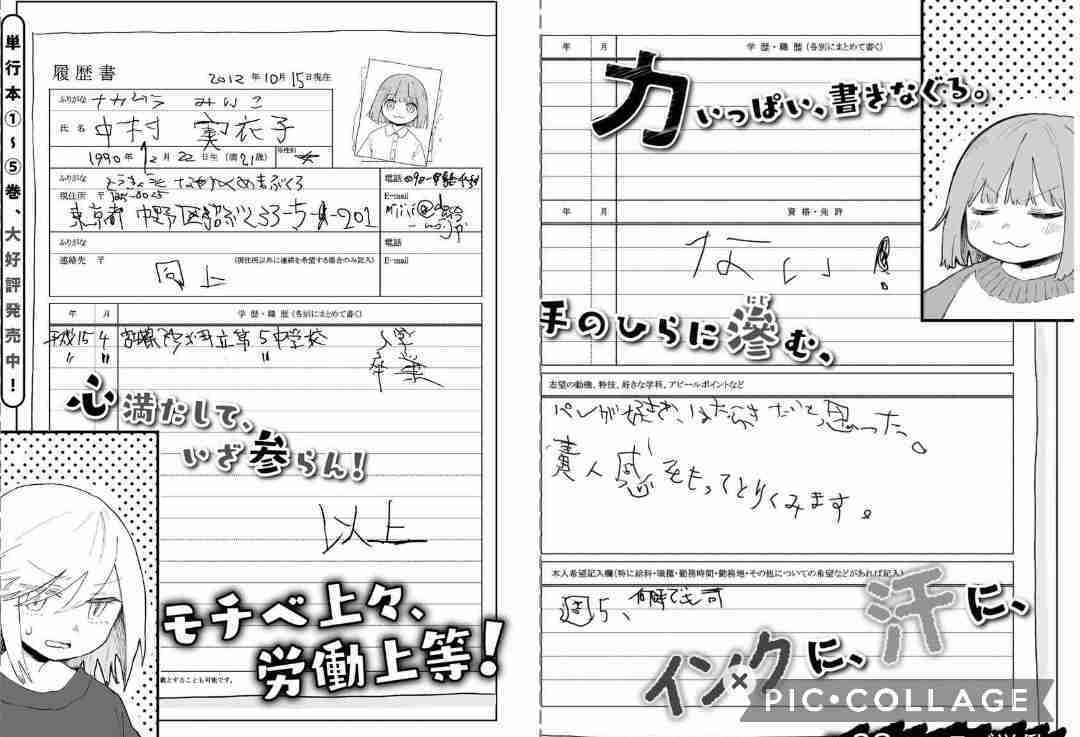 単行本①～⑤巻、大好評発売中！
履歴書
2012 年 10 月 15 日現在
ふりがな ナカムラ みいこ
氏名 中村 実衣子
1990 年 12 月 22 日生 (満 21 歳)
ふりがな
現住所 〒
東京都 中野区
201
電話
E-mail
ふりがな
電話
連絡先 〒
(現住所以外に連絡を希望する場合のみ記入)
E-mail
同上
年 月 学歴・職歴 (各別にまとめて書く)
平成15 4 立第5中学校 入学
〃 〃 〃 卒業
心満たして、
いざ参らん！
以上
モチベ上々、
労働上等！
することも可能です。
年 月 学歴・職歴 (各別にまとめて書く)
力いっぱい、書きなぐる。
年 月 資格・免許
ない！
手のひらに滲む、
にじ
志望の動機、特技、好きな学科、アピールポイントなど
パンが好きで、はたらきたいと思った。
責人感をもってとりくみます。
本人希望記入欄(特に給料・職種・勤務時間・勤務地・その他についての希望などがあれば記入)
週5、何時でも可
汗に、
インクに、
PIC•COLLAGE